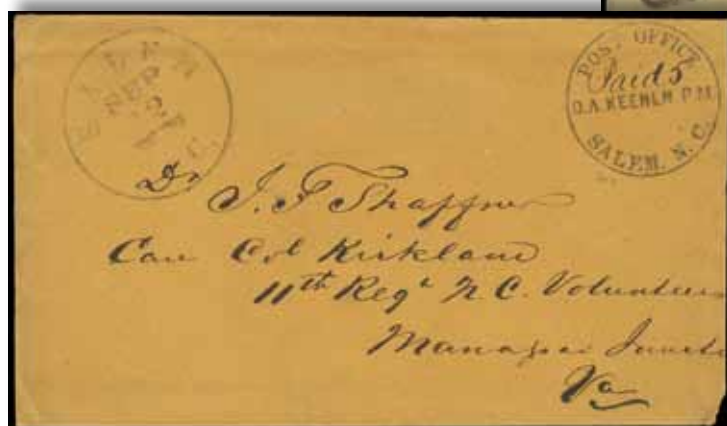 SALEM
N. C.
POST OFFICE
Paid 5
O.A. KEEHLN. P.M.
SALEM. N. C.
Dr J. F Shaffner
Care Col Kirkland
11th Regt N. C. Volunteers
Manassas Juncti
Va